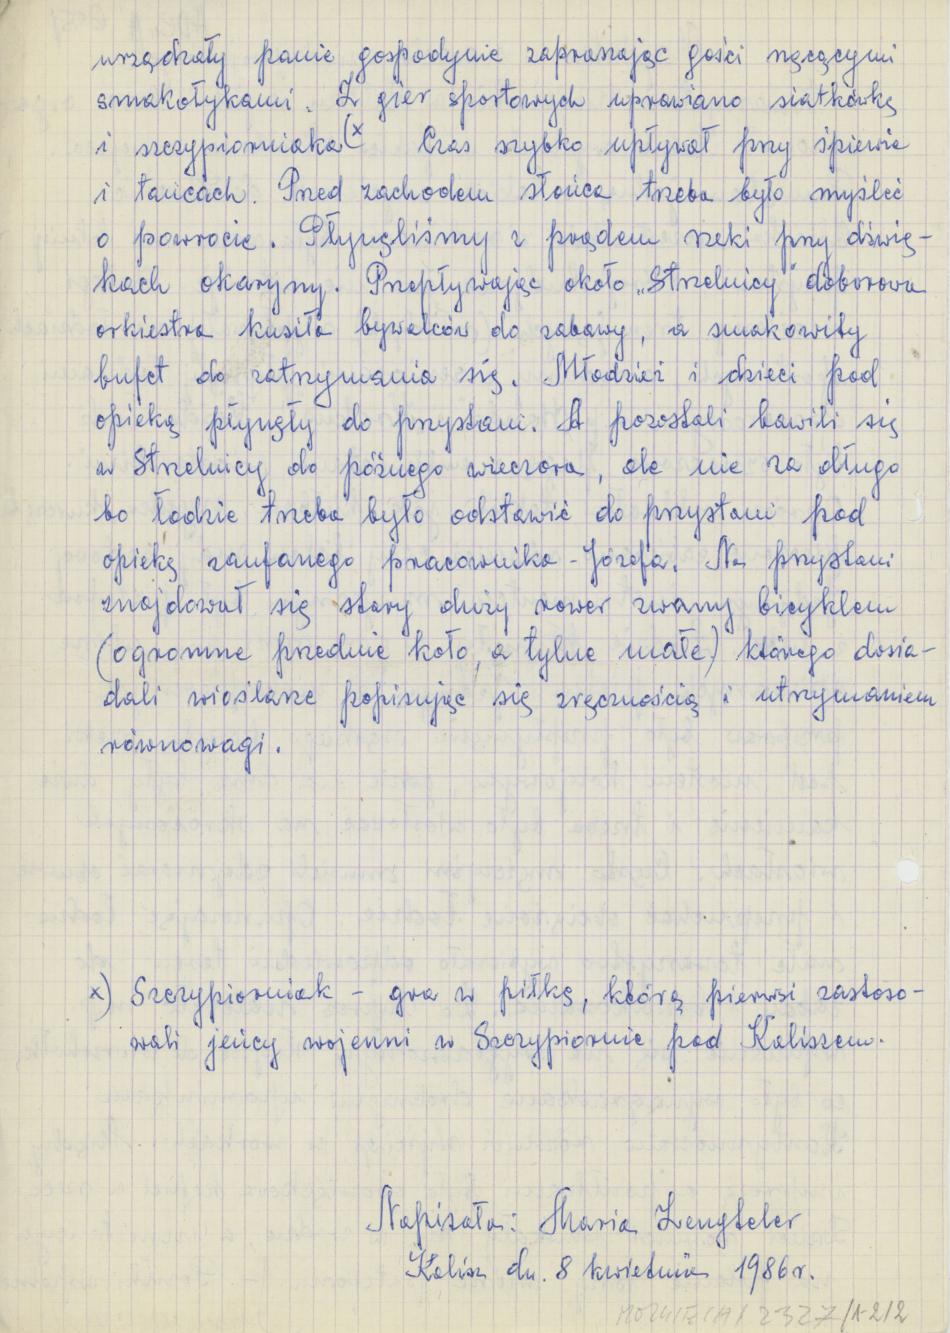 urządzały panie gospodynie zapraszając gości nęcącymi
smakołykami. Z gier sportowych uprawiano siatkówkę
i szczypiorniaka(x Czas szybko upływał przy śpiewie
i tańcach. Przed zachodem słońca trzeba było myśleć
o powrocie. Płynęliśmy z prądem rzeki przy dźwię-
kach okaryny. Przepływając około „Strzelnicy" doborowa
orkiestra kusiła bywalców do zabawy, a smakowity
bufet do zatrzymania się. Młodzież i dzieci pod
opieką płynęły do przystani. A pozostali bawili się
w Strzelnicy do późnego wieczora, ale nie za długo
bo łodzie trzeba było odstawić do przystani pod
opiekę zaufanego pracownika - Józefa. Na przystani
znajdował się stary duży rower zwany bicyklem
(ogromne przednie koło, a tylne małe) którego dosia-
dali wioślarze popisując się zręcznością i utrzymaniem
równowagi.
x) Szczypiorniak - gra w piłkę, którą pierwsi zastoso-
wali jeńcy wojenni w Szczypiornie pod Kaliszem.
Napisała: Maria
Kalisz dn. 8 kwietnia 1986 r.
2327/1-2/2